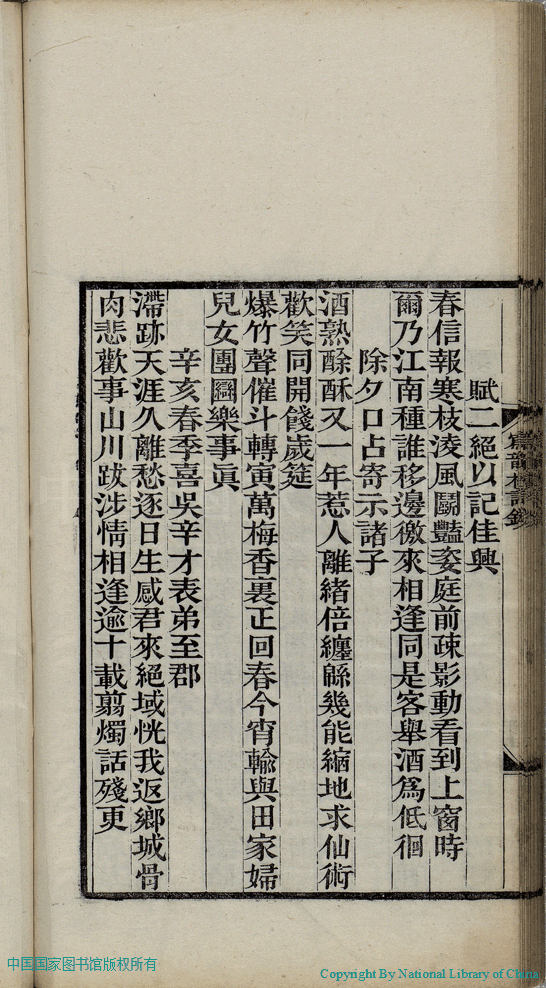 寫韻樓詩鈔
賦二絕以記佳興
春信報寒枝淩風鬭豔姿庭前疎影動看到上窗時
爾乃江南種誰移邊徼來相逢同是客舉酒爲低徊
除夕口占寄示諸子
酒熟酴酥又一年惹人離緒倍纏緜幾能縮地求仙術
歡笑同開餞歲筵
爆竹聲催斗轉寅萬梅香裏正回春今宵輸與田家婦
兒女團圞樂事眞
辛亥春季喜吳辛才表弟至郡
滯跡天涯久離愁逐日生感君來絕域恍我返鄉城骨
肉悲歡事山川跋涉情相逢逾十載翦燭話殘更
中国国家图书馆版权所有
Copyright By National Library of China